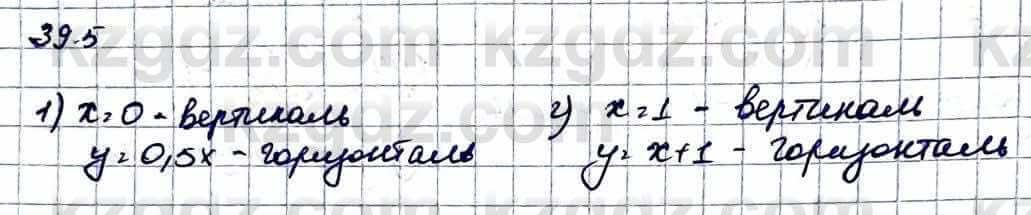 39.5
1) x=0 - вертикаль
y=0,5x - горизонталь
2) x=1 - вертикаль
y=x+1 - горизонталь
kzgdz.com